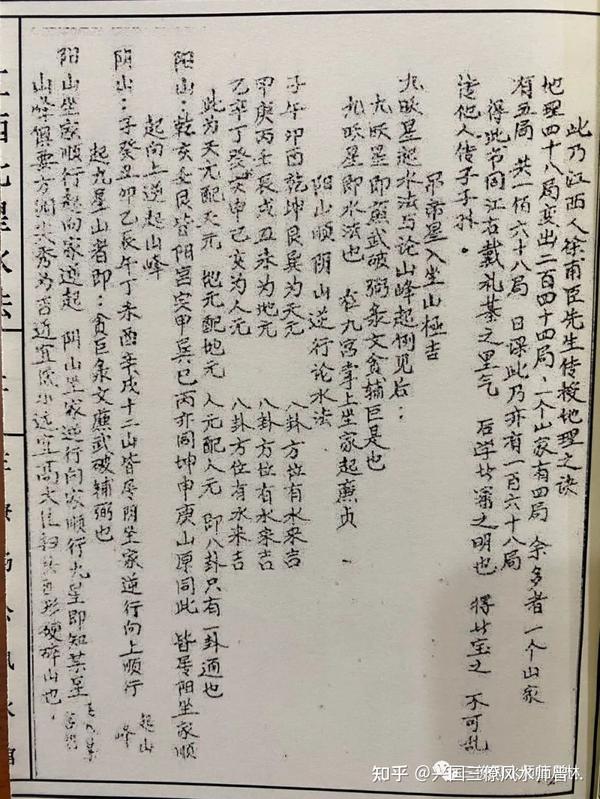 此乃江西人徐甫臣先生传授地理之诀
地理四十八局变出二百四十四局，一个山家有四局 余多者一个山家
有五局 共一佰六十八局 日课此乃亦有一百六十八局
得此书同江右戴礼綦之里气 后学甘潘之明也 得此宝之 不可乱
传他人传子子孙。
吊帝星入坐山极吉
九吹星起水法与论山峰起例见后：
九吹星即蔗武破弼条文贪辅巨是也
九吹星即水法也 在九宫掌上坐家起廉贞
阳山顺阴山逆行论水法
子午卯酉乾坤艮巽为天元 八卦方位有水来吉
甲庚丙壬辰戌丑未为地元 八卦方位有水来吉
乙辛丁癸寅申巳亥为人元 八卦方位有水来吉
此为天元配天元 地元配地元 人元配人元 即八卦只有一卦通也
阳山：乾亥壬艮皆阳宫寅甲巽巳丙亦同坤申庚山原同此 皆居阳坐家顺
起向上逆起山峰
阴山：子癸丑卯乙辰午丁未酉辛戌十二山皆居阴坐家逆行向上顺行 起山峰
起九星山者即：贪巨条文蔗武破辅弼也
阳山坐家顺行起向家逆起 阴山坐家逆行向家顺行九星即知某星
山峰俱要方润尖秀为吉近宜低小远宜高大
知乎 @兴国三僚风水师曾林